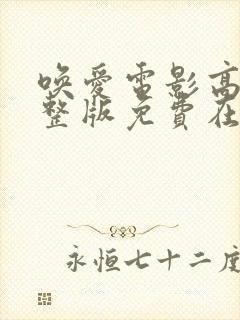 唤爱電影高
整版免費在
永恒七十二度